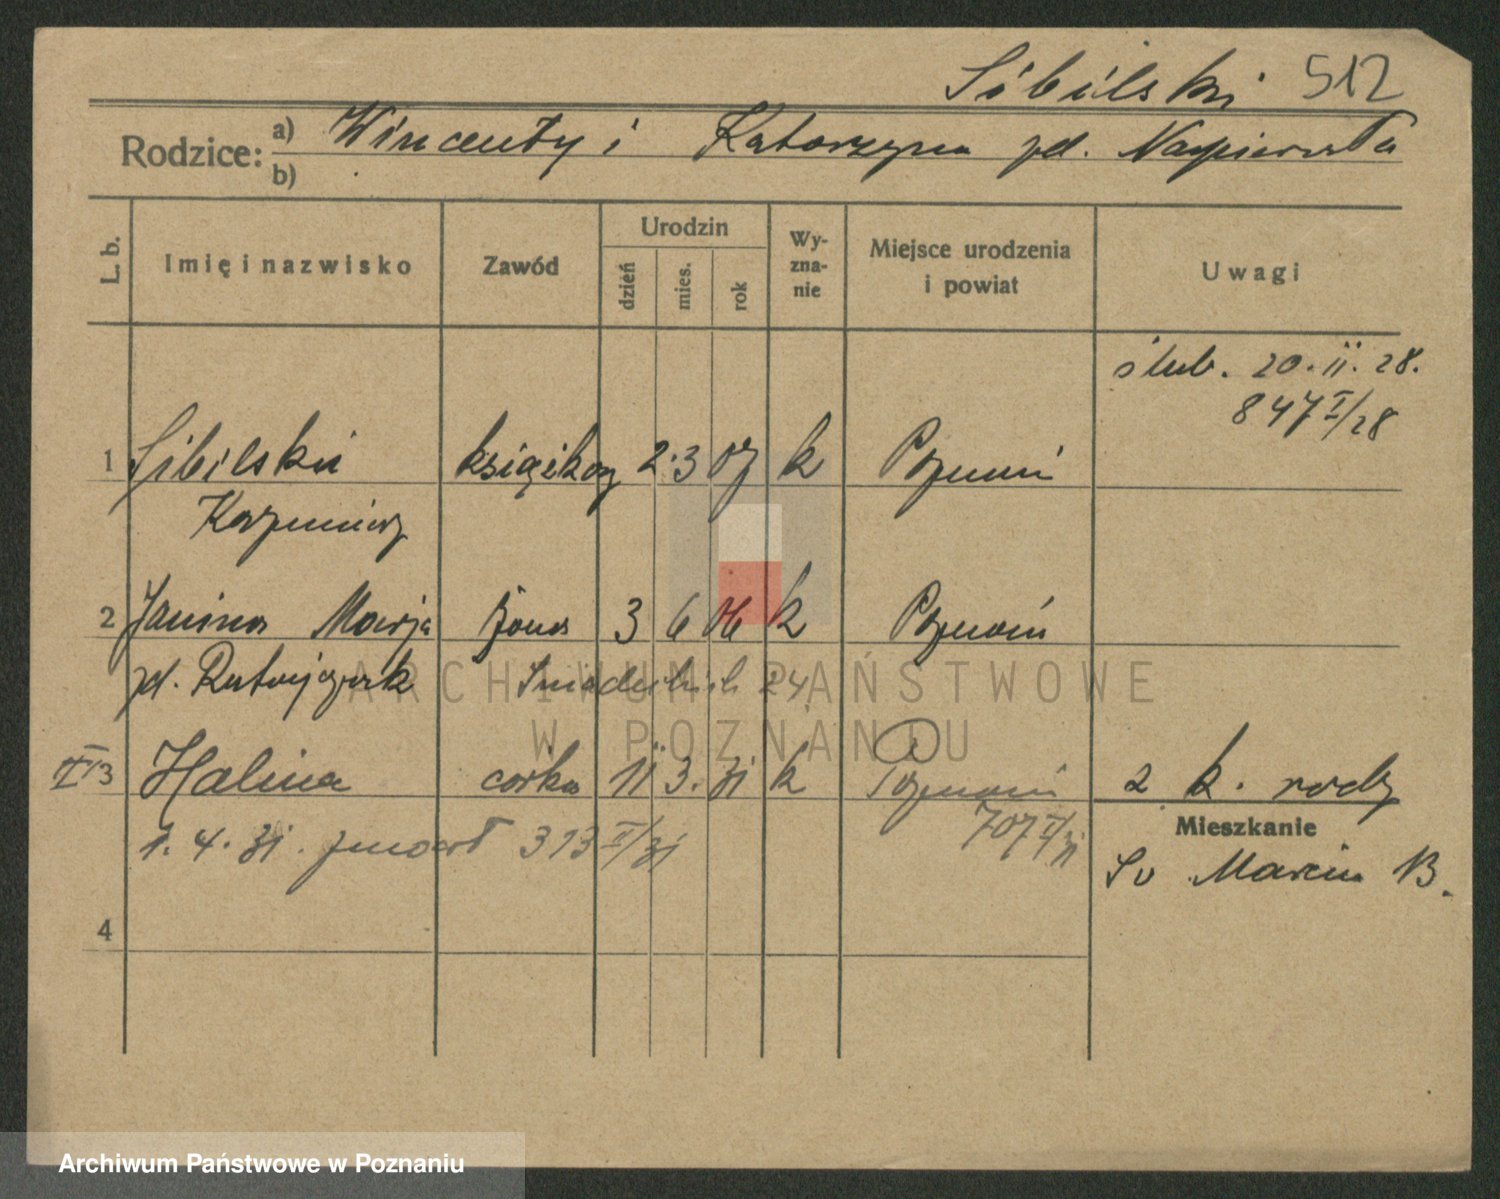 Sibilski 512
Rodzice: a) Wincenty i Katarzyna zd. Napierała
b)
L. b. Imię i nazwisko Zawód Urodzin dzień mies. rok Wy-zna-nie Miejsce urodzenia i powiat Uwagi
ślub. 20.II.28.
847 I/28
1 Sibilski księgkow 2. 3 07 k Poznań
Kazimierz
2 Janina Marja żona 3 6 06 k Poznań
zd. Ratajczak Śniadeckich 24
3 Halina córka 11 3. 31 k Poznań 2 k. rodz
707 31
1. 4. 31. zmarł 313 II/31
Mieszkanie
Sw Marcin 13.
4
ARCHIWUM PAŃSTWOWE
W POZNANIU
Archiwum Państwowe w Poznaniu